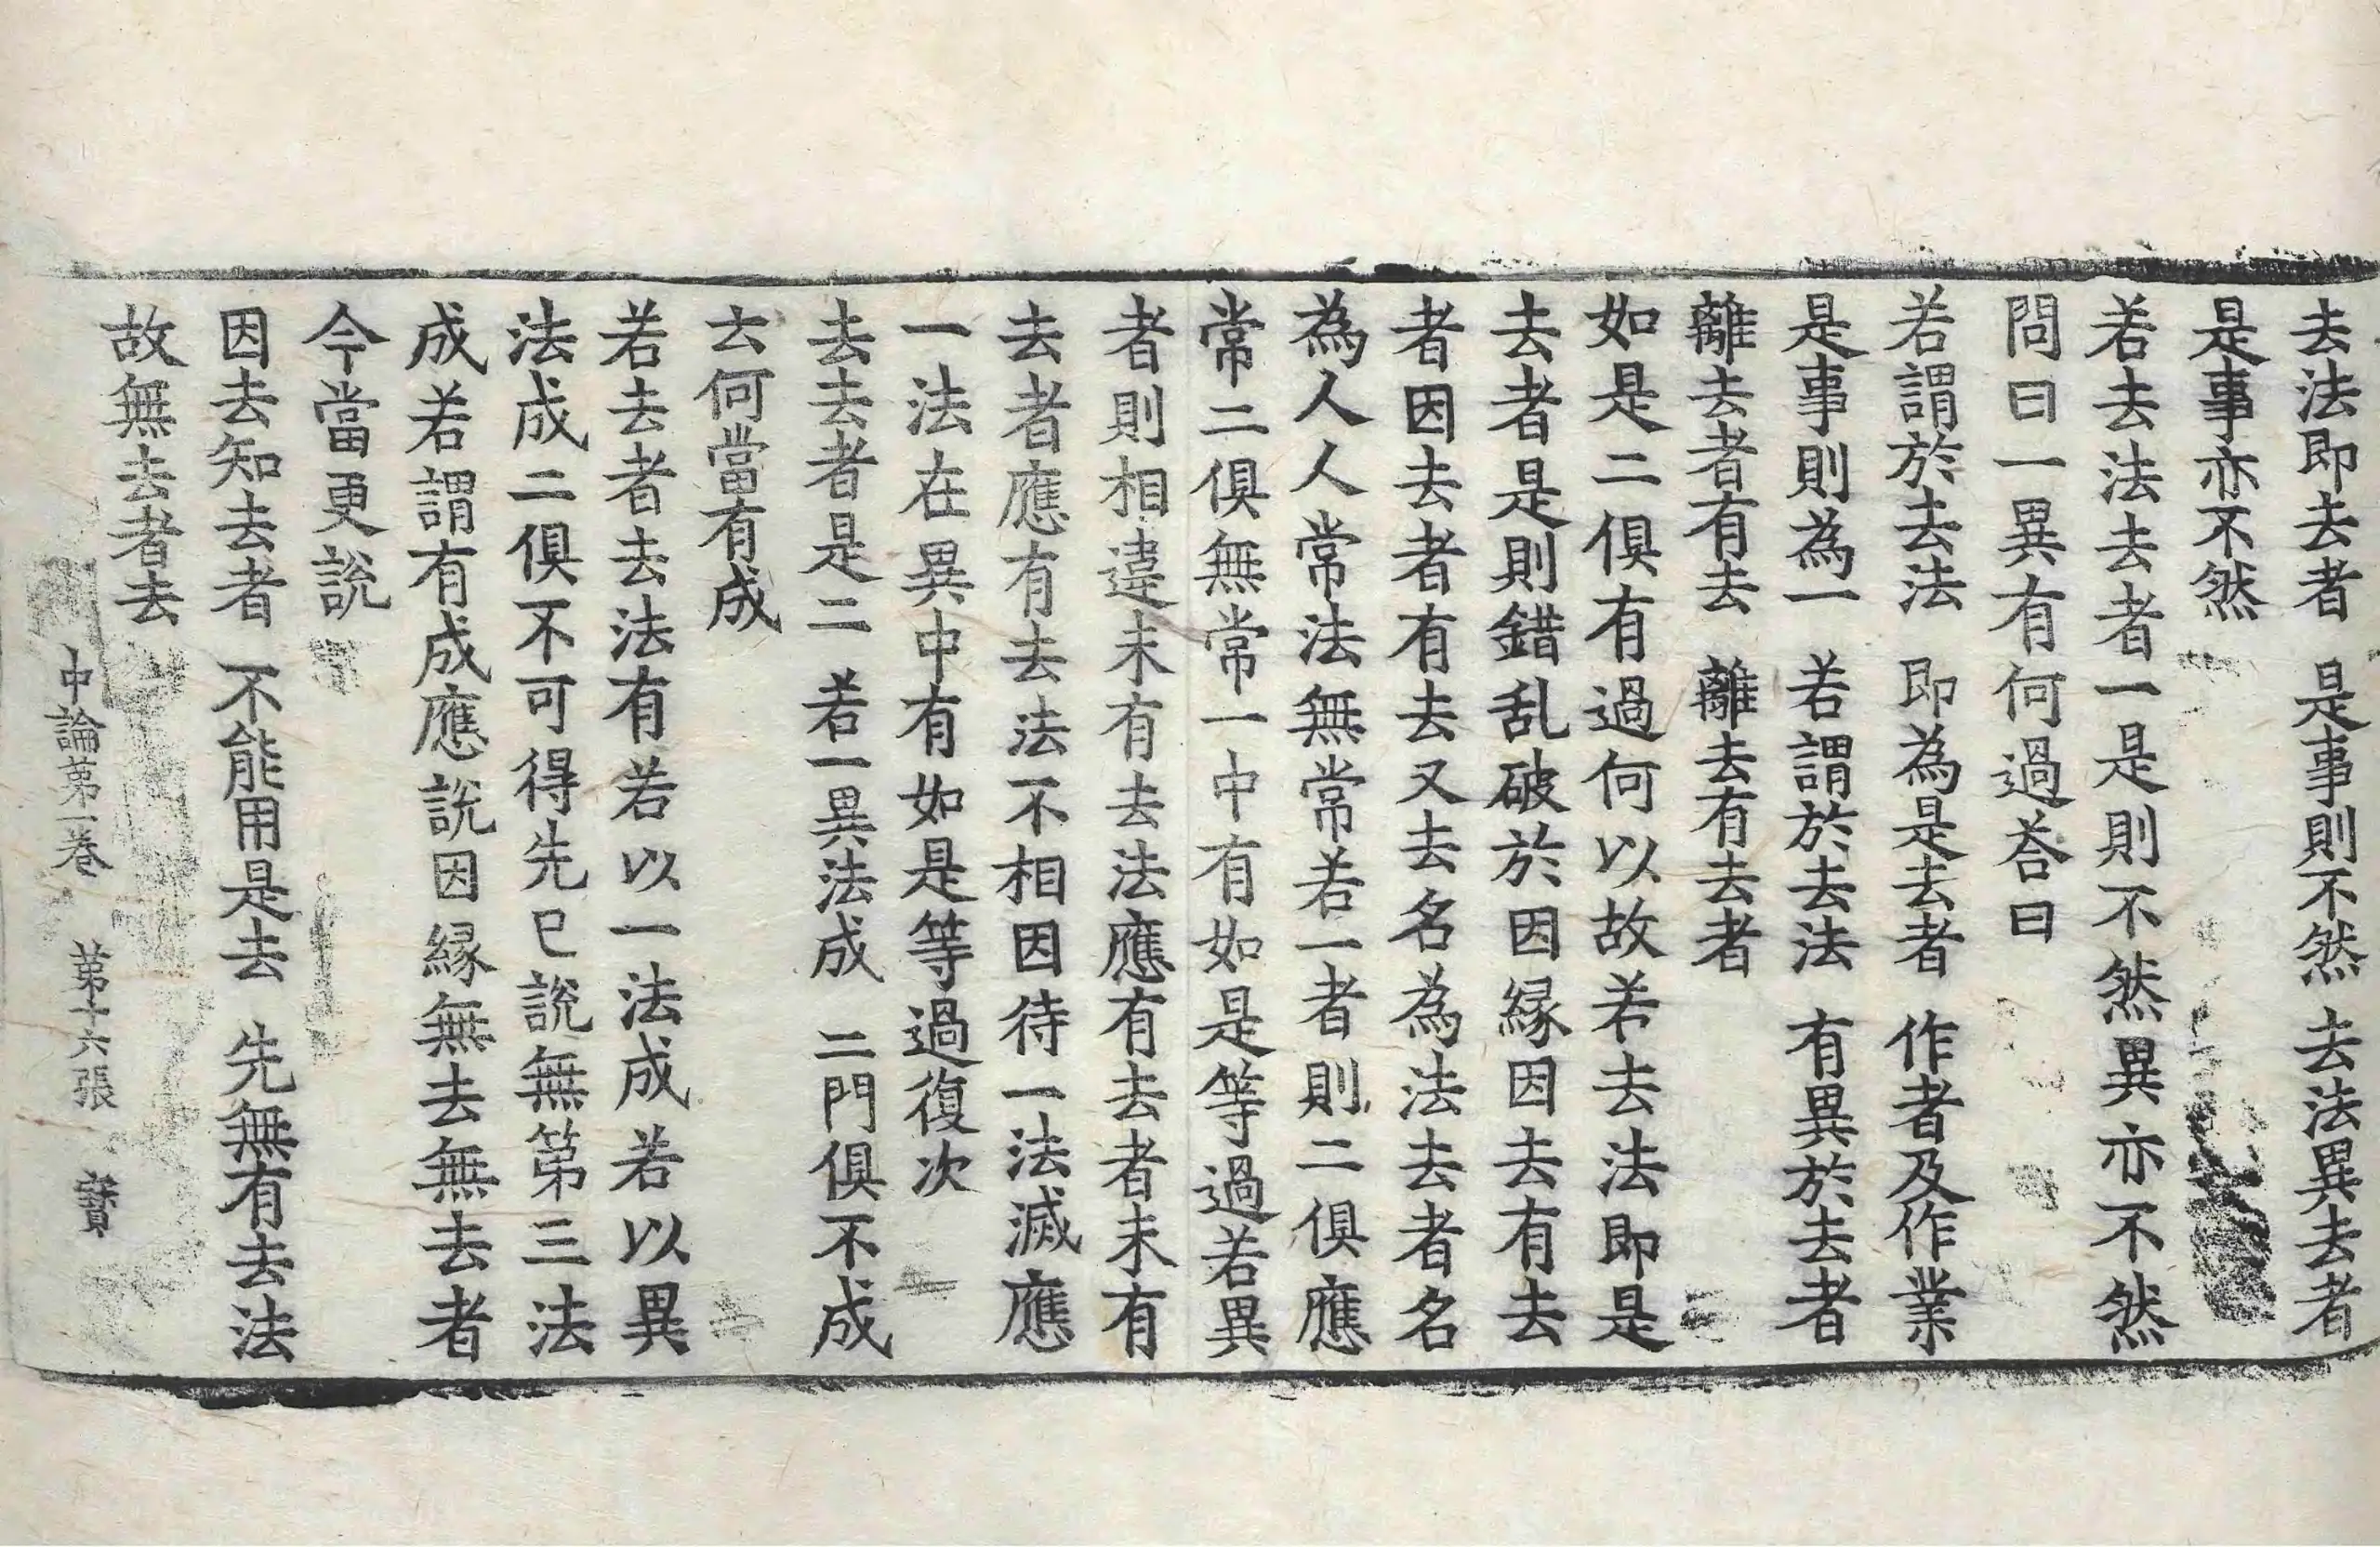 去法即去者　是事則不然　去法異去者
是事亦不然
若去法去者一是則不然異亦不然
問曰一異有何過荅曰
若謂於去法　即為是去者　作者及作業
是事則為一　若謂於去法　有異於去者
離去者有去　離去有去者
如是二俱有過何以故若去法即是
去者是則錯乱破於因縁因去有去
者因去者有去又去名為法去者名
為人人常法無常若一者則二俱應
常二俱無常一中有如是等過若異
者則相違未有去法應有去者未有
去者應有去法不相因待一法滅應
一法在異中有如是等過復次
去去者是二　若一異法成　二門俱不成
云何當有成
若去者去法有若以一法成若以異
法成二俱不可得先已說無第三法
成若謂有成應說因縁無去無去者
今當更說
因去知去者　不能用是去　先無有去法
故無去者去
中論第一卷　第十六張　寶